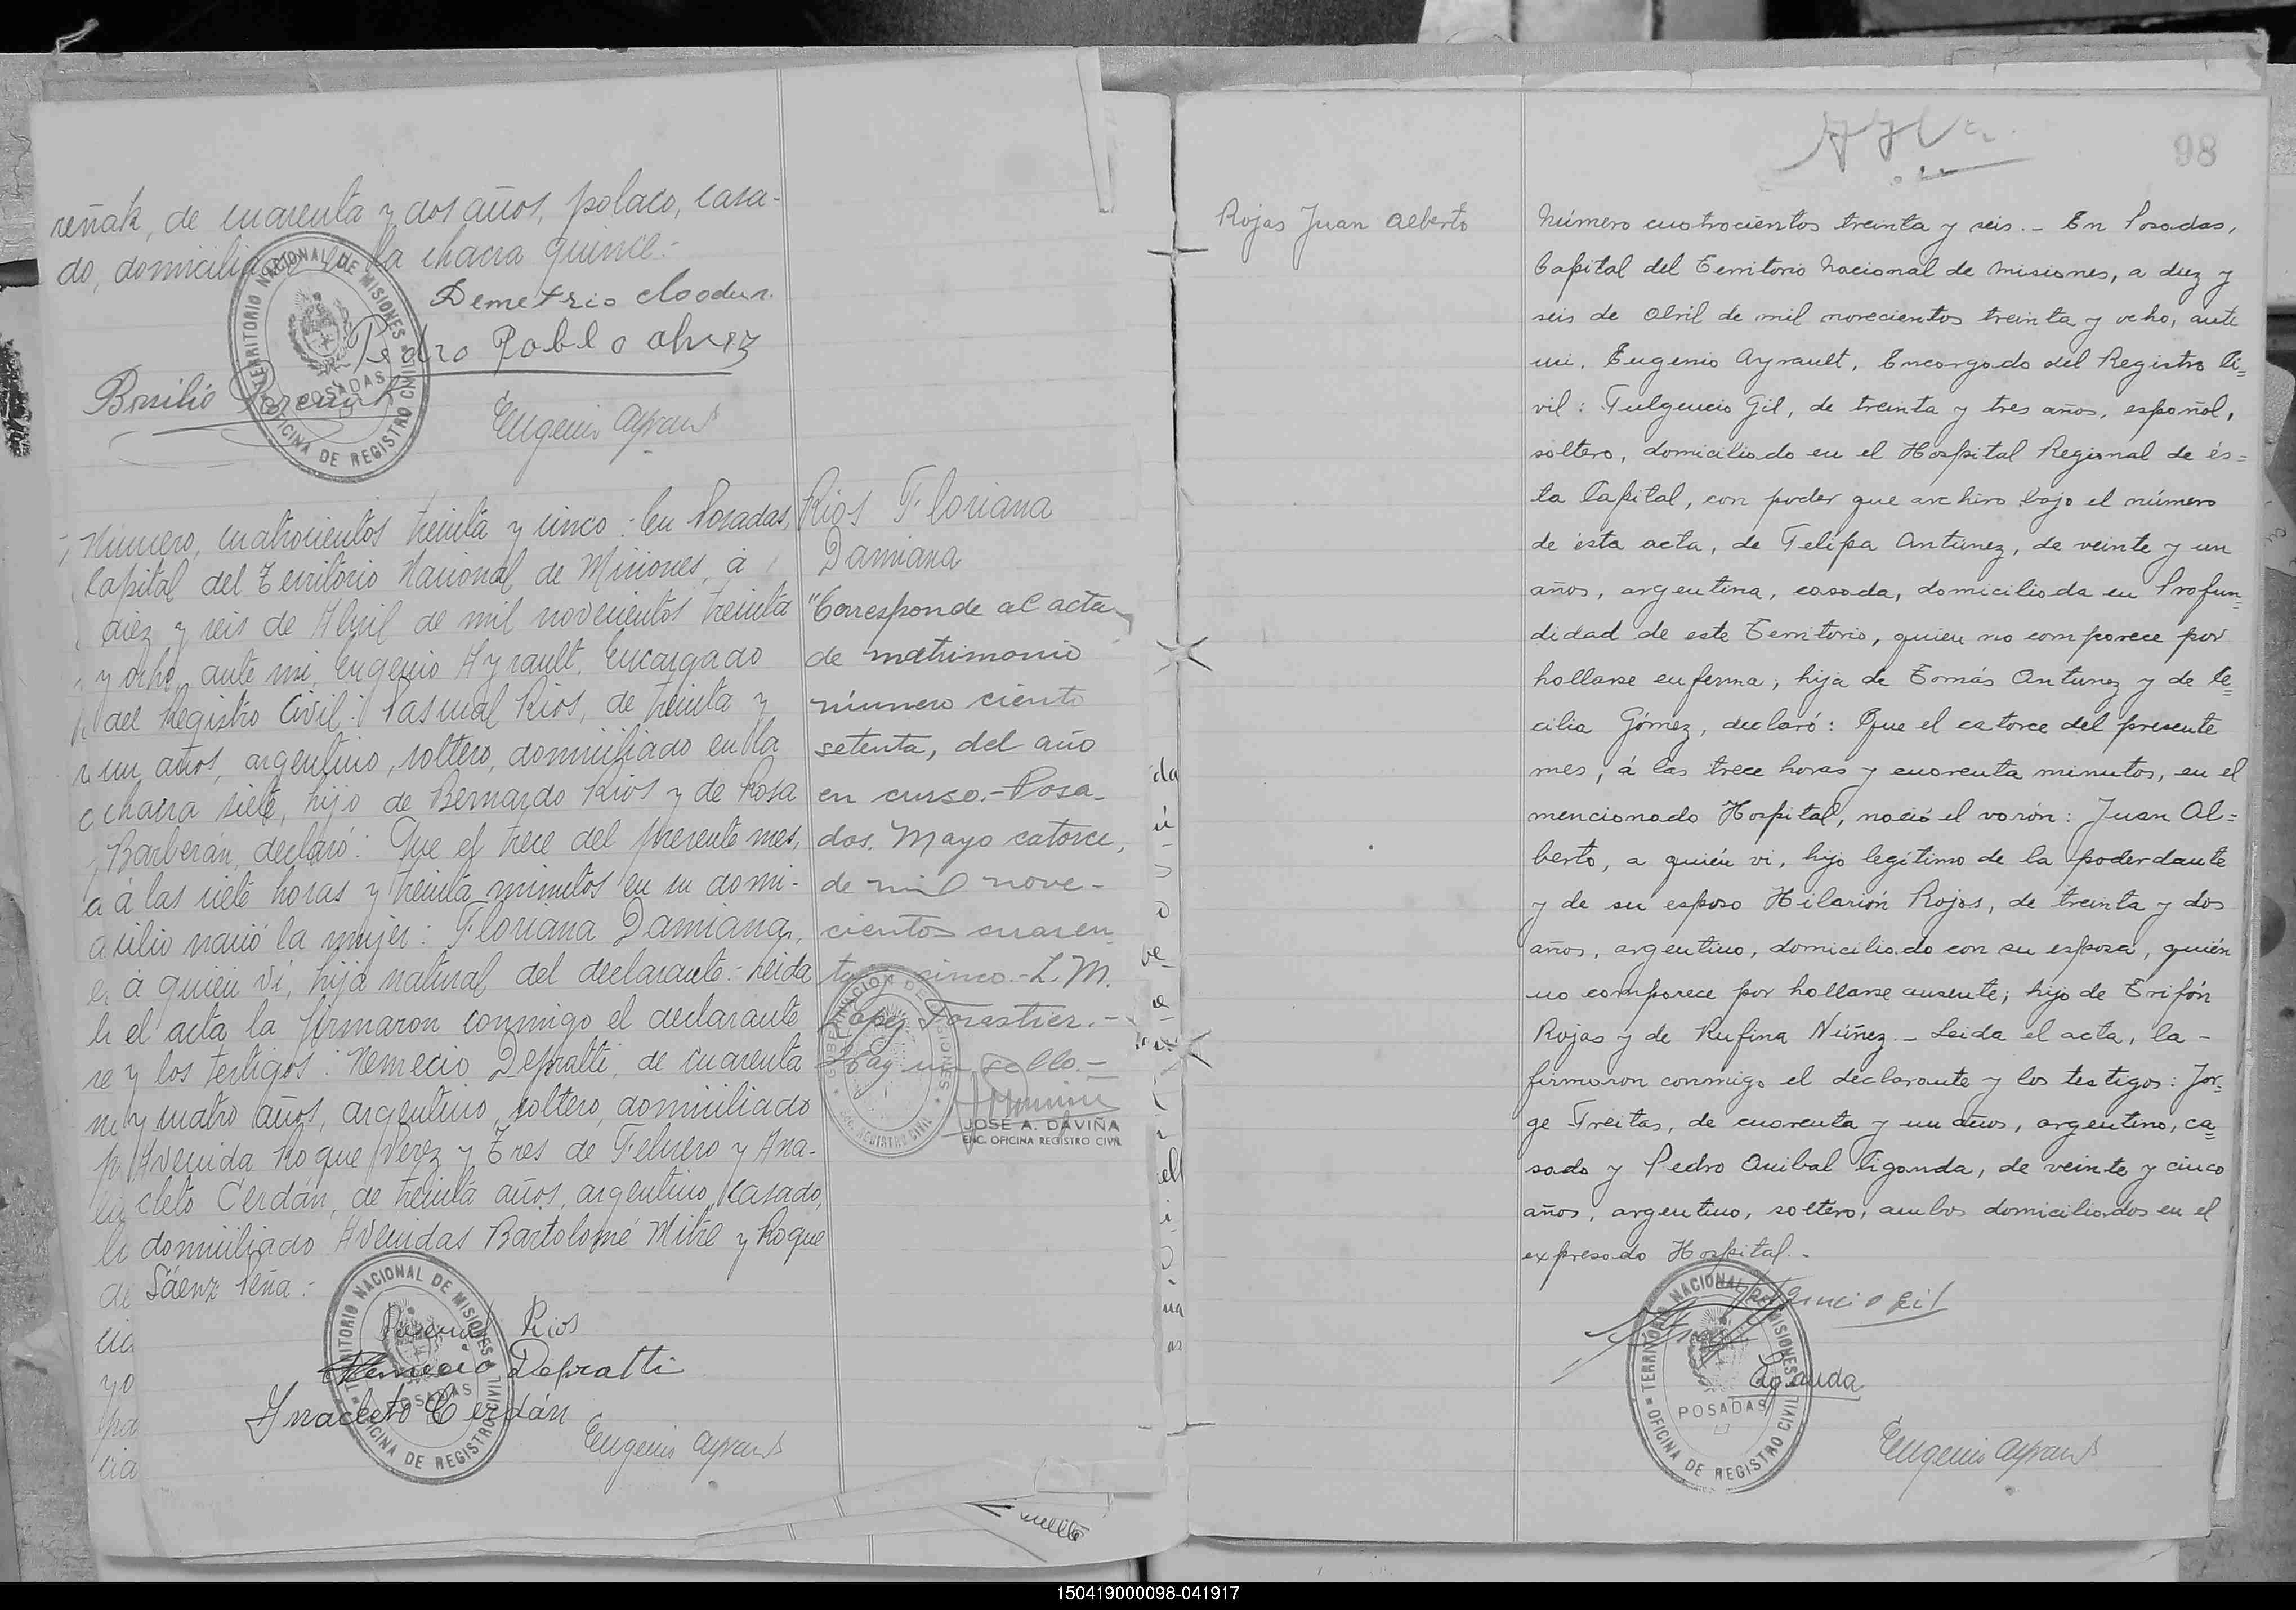 reñak, de cuarenta y dos años, polaco, casa-
do, domiciliado la chacra quince.-
Demetrio
Pedro Pablo Alvez
Basilio
Eugenio Ayrault
TERRITORIO NACIONAL DE MISIONES
POSADAS
OFICINA DE REGISTRO CIVIL
Número, cuatrocientos treinta y cinco: En Posadas,
Capital del Territorio Nacional de Misiones, á
diez y seis de Abril de mil novecientos treinta
y ocho, ante mi, Eugenio Ayrault, Encargado
del Registro Civil: Pascual Rios, de treinta y
un años, argentino, soltero, domiciliado en la
chacra siete, hijo de Bernardo Rios y de Rosa
Barberán, declaró: Que el trece del presente mes,
á las siete horas y treinta minutos en su domi-
cilio nació la mujer: Floriana Damiana,
á quién ví, hija natural del declarante.- Leida
el acta la firmaron conmigo el declarante
y los testigos: Nemecio Depratti, de cuarenta
y cuatro años, argentino, soltero, domiciliado
Avenida Roque Perez y Tres de Febrero y Ana-
cleto Cerdán, de treinta años, argentino, casado,
domiciliado Avenidas Bartolomé Mitre y Roque
Sáenz Peña.-
Pascual Rios
Nemecio Depratti
Anacleto Cerdán
Eugenio Ayrault
TERRITORIO NACIONAL DE MISIONES
POSADAS
OFICINA DE REGISTRO CIVIL
Rios Floriana
Damiana
"Corresponde al acta
de matrimonio
número ciento
setenta, del año
en curso.- Posa-
das. Mayo catorce,
de mil nove-
cientos cuaren-
ta y cinco.- L. M.
López Forastier.-
Hay un sello.-
JOSE A. DAVIÑA
ENC. OFICINA REGISTRO CIVIL
98
Rojas Juan Alberto
Número cuatrocientos treinta y seis.- En Posadas,
Capital del Territorio Nacional de Misiones, a diez y
seis de Abril de mil novecientos treinta y ocho, ante
mi, Eugenio Ayrault, Encargado del Registro Ci=
vil: Fulgencio Gil, de treinta y tres años, español,
soltero, domiciliado en el Hospital Regional de és=
ta Capital, con poder que archivo bajo el número
de ésta acta, de Felipa Antúnez, de veinte y un
años, argentina, casada, domiciliada en Profun=
didad de este Territorio, quien no comparece por
hallarse enferma; hija de Tomás Antunez y de Ce=
cilia Gómez, declaró: Que el catorce del presente
mes, á las trece horas y cuarenta minutos, en el
mencionado Hospital, nació el varón: Juan Al=
berto, a quién vi, hijo legítimo de la poderdante
y de su esposo Hilarión Rojas, de treinta y dos
años, argentino, domiciliado con su esposa, quién
no comparece por hallarse ausente; hijo de Trifón
Rojas y de Rufina Núñez.- Leida el acta, la-
firmaron conmigo el declarante y los testigos: Jor=
ge Freitas, de cuarenta y un años, argentino, ca=
sado y Pedro Anibal Ciganda, de veinte y cinco
años, argentino, soltero, ambos domiciliados en el
expresado Hospital.-
Fulgencio Gil
Ciganda
Eugenio Ayrault
TERRITORIO NACIONAL DE MISIONES
POSADAS
OFICINA DE REGISTRO CIVIL
150419000098-041917